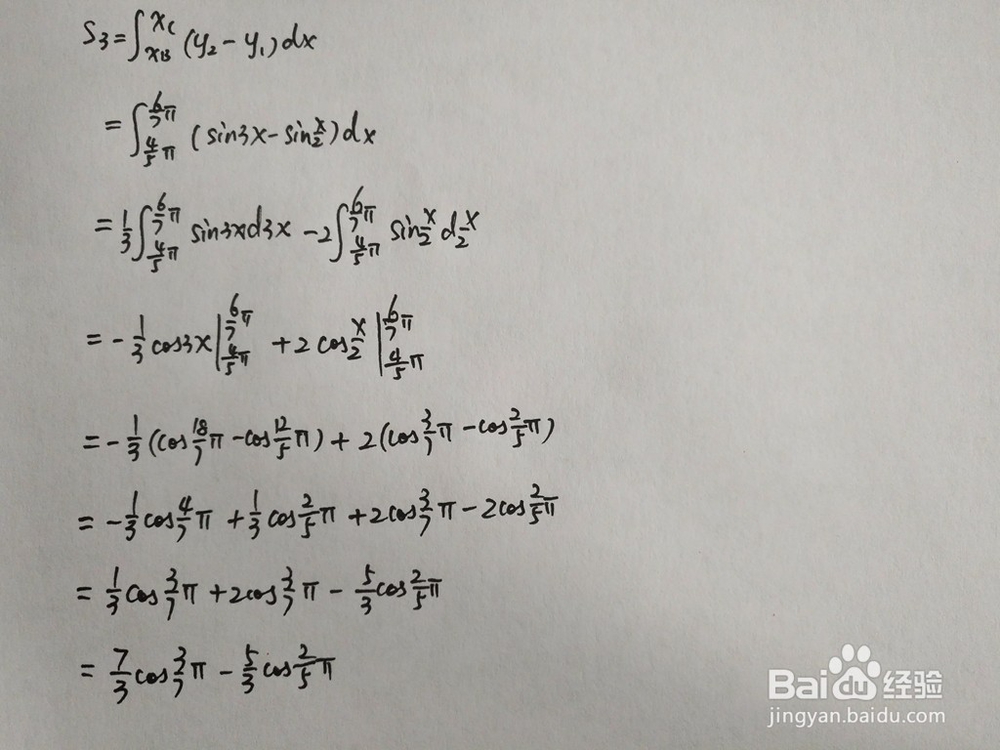 S₃=∫_{x_B}^{x_C} (y₂-y₁)dx
=∫_{4/5π}^{6/7π} (sin3x-sin x/2)dx
=1/3∫_{4/5π}^{6/7π} sin3xd3x -2∫_{4/5π}^{6/7π} sin x/2 d x/2
=-1/3 cos3x|_{4/5π}^{6/7π} +2cos x/2|_{4/5π}^{6/7π}
=-1/3(cos 18/7π-cos 12/5π)+2(cos 3/7π-cos 2/5π)
=-1/3cos 4/7π+1/3cos 2/5π+2cos 3/7π-2cos 2/5π
=1/3cos 3/7π+2cos 3/7π-5/3cos 2/5π
=7/3cos 3/7π-5/3cos 2/5π
Baidu 经验
jingyan.baidu.com